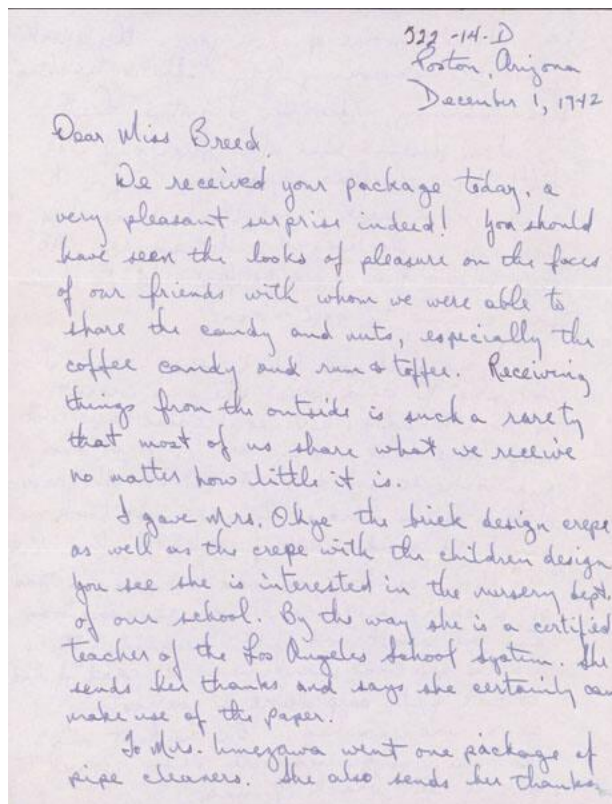 322-14-D
Poston, Arizona
December 1, 1942
Dear Miss Breed,
We received your package today, a
very pleasant surprise indeed! You should
have seen the looks of pleasure on the faces
of our friends with whom we were able to
share the candy and nuts, especially the
coffee candy and rum & toffee. Receiving
things from the outside is such a rarety
that most of us share what we receive
no matter how little it is.
I gave Mrs. the brick design crepe
as well as the crepe with the children design
you see she is interested in the nursery dept.
of our school. By the way she is a certified
teacher of the Los Angeles School System. She
sends her thanks and says she certainly can
make use of the paper.
To Mrs. Umezawa went one package of
pipe cleaners. She also sends her thanks